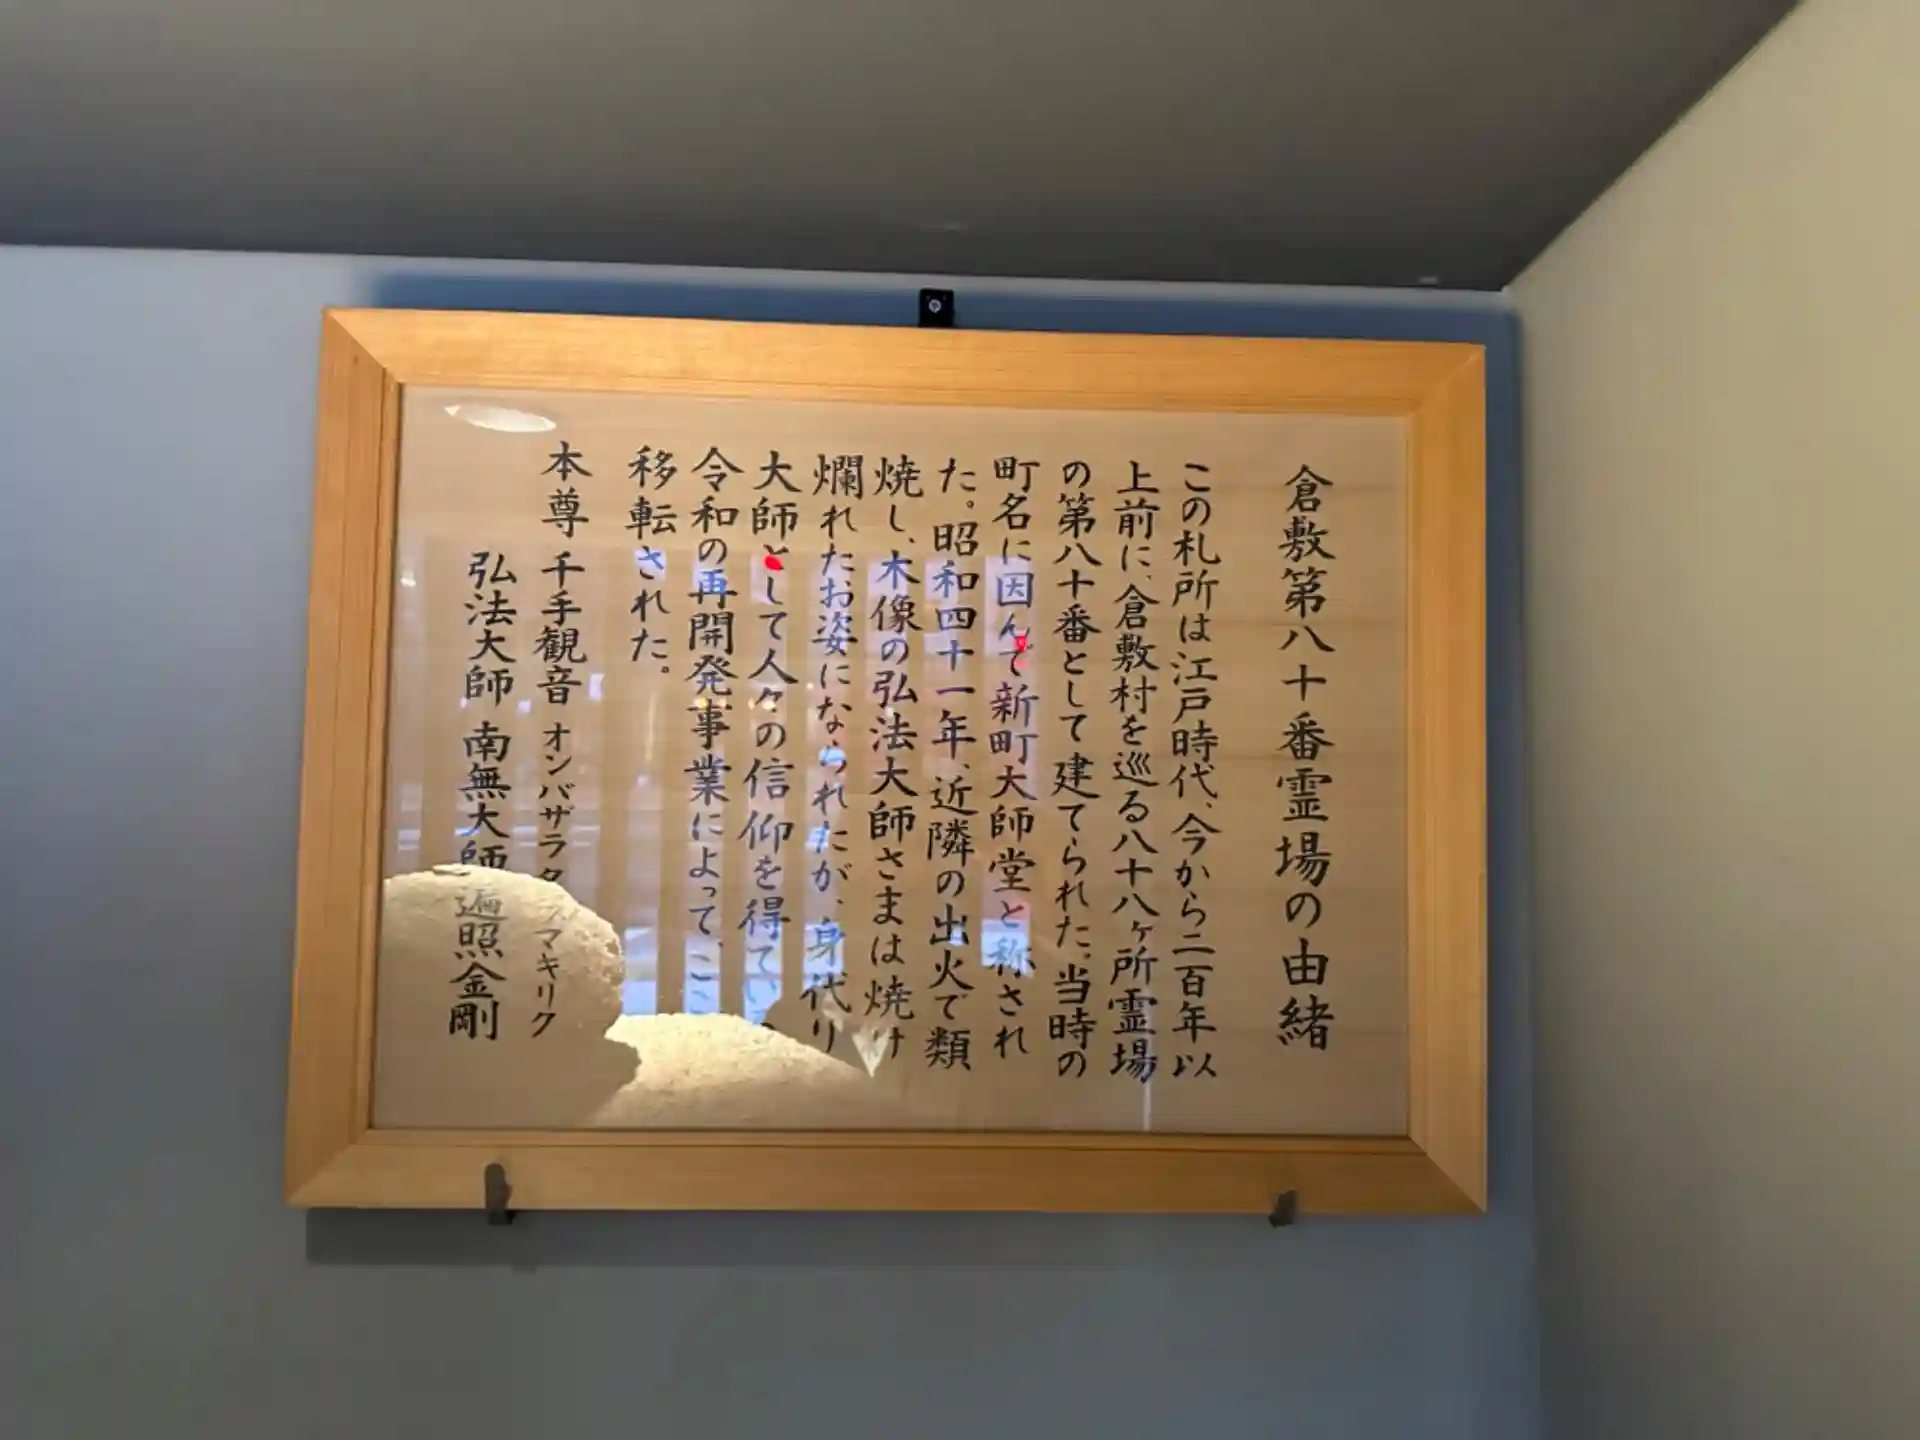 倉敷第八十番霊場の由緒
この札所は江戸時代、今から二百年以
上前に、倉敷村を巡る八十八ヶ所霊場
の第八十番として建てられた。当時の
町名に因んで新町大師堂と称され
た。昭和四十一年、近隣の出火で類
焼し、木像の弘法大師さまは焼け
爛れたお姿になられたが、身代り
大師として人々の信仰を得ている
令和の再開発事業によって、ここ
移転された。
本尊 千手観音 オンバザラタ マキリク
弘法大師 南無大師遍照金剛